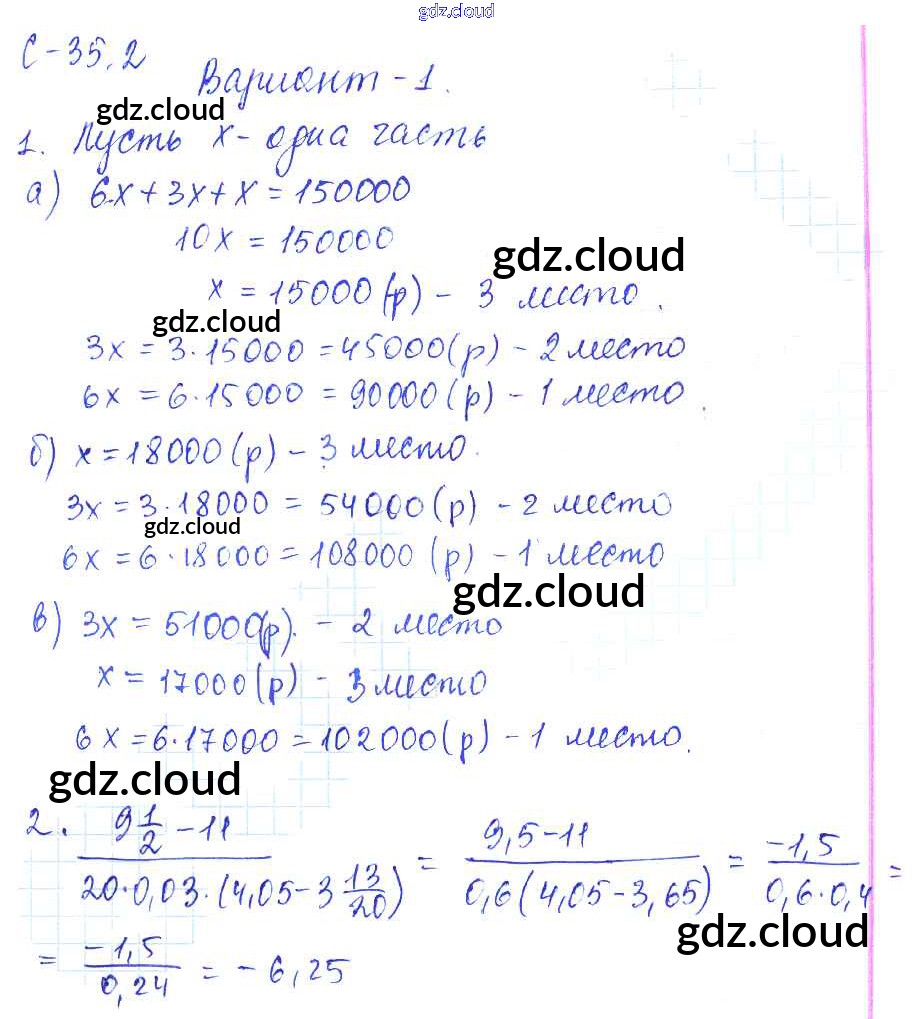 gdz.cloud
С-35.2
Вариант-1.
gdz.cloud
1. Пусть х - одна часть
а) 6х + 3х + х = 150000
10х = 150000
gdz.cloud
х = 15000 (р) - 3 место.
gdz.cloud
3х = 3·15000 = 45000 (р) - 2 место
6х = 6·15000 = 90000 (р) - 1 место.
б) х = 18000 (р) - 3 место.
3х = 3·18000 = 54000 (р) - 2 место
gdz.cloud
6х = 6·18000 = 108000 (р) - 1 место
gdz.cloud
в) 3х = 51000 (р). - 2 место
х = 17000 (р) - 3 место
6х = 6·17000 = 102000 (р) - 1 место.
gdz.cloud
2. (9 1/2 - 11)/(20·0,03·(4,05 - 3 13/20)) = (9,5 - 11)/(0,6(4,05 - 3,65)) = (-1,5)/(0,6·0,4) =
gdz.cloud
= (-1,5)/(0,24) = - 6,25